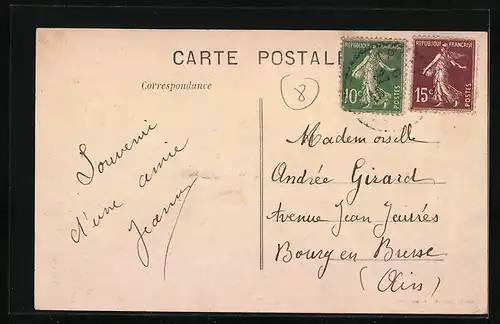 CARTE POSTALE
Correspondance
REPUBLIQUE FRANÇAISE
10c
POSTES
REPUBLIQUE FRANÇAISE
15c
POSTES
8
Souvenir
d'une amie
Mademoiselle
Andrée Girard
Avenue Jean Jaurés
Bourg en Bresse
(Ain)